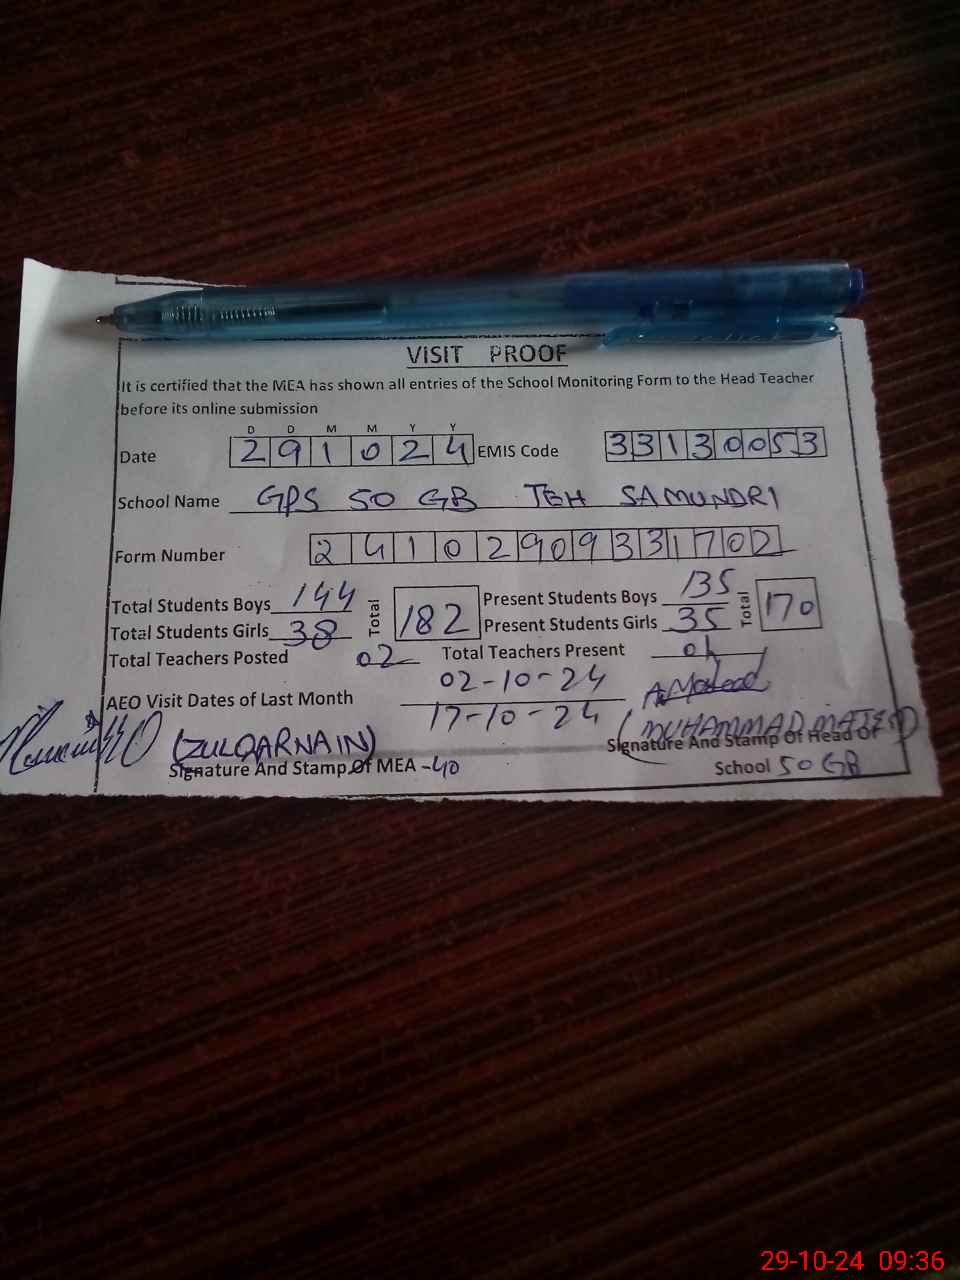 VISIT PROOF
It is certified that the MEA has shown all entries of the School Monitoring Form to the Head Teacher
before its online submission
D D M M Y Y
Date 291024 EMIS Code 33130053
School Name GPS 50 GB TEH SAMUNDRI
Form Number 24102909331702
Total Students Boys 144 Total 182 Present Students Boys 135 Total 170
Total Students Girls 38 Present Students Girls 35
Total Teachers Posted 02 Total Teachers Present
AEO Visit Dates of Last Month 02-10-24
17-10-24
(ZULQARNAIN) (MUHAMMAD MAJEED)
Signature And Stamp Of MEA -40 Signature And Stamp Of Head Of
School 50 GB
29-10-24 09:36